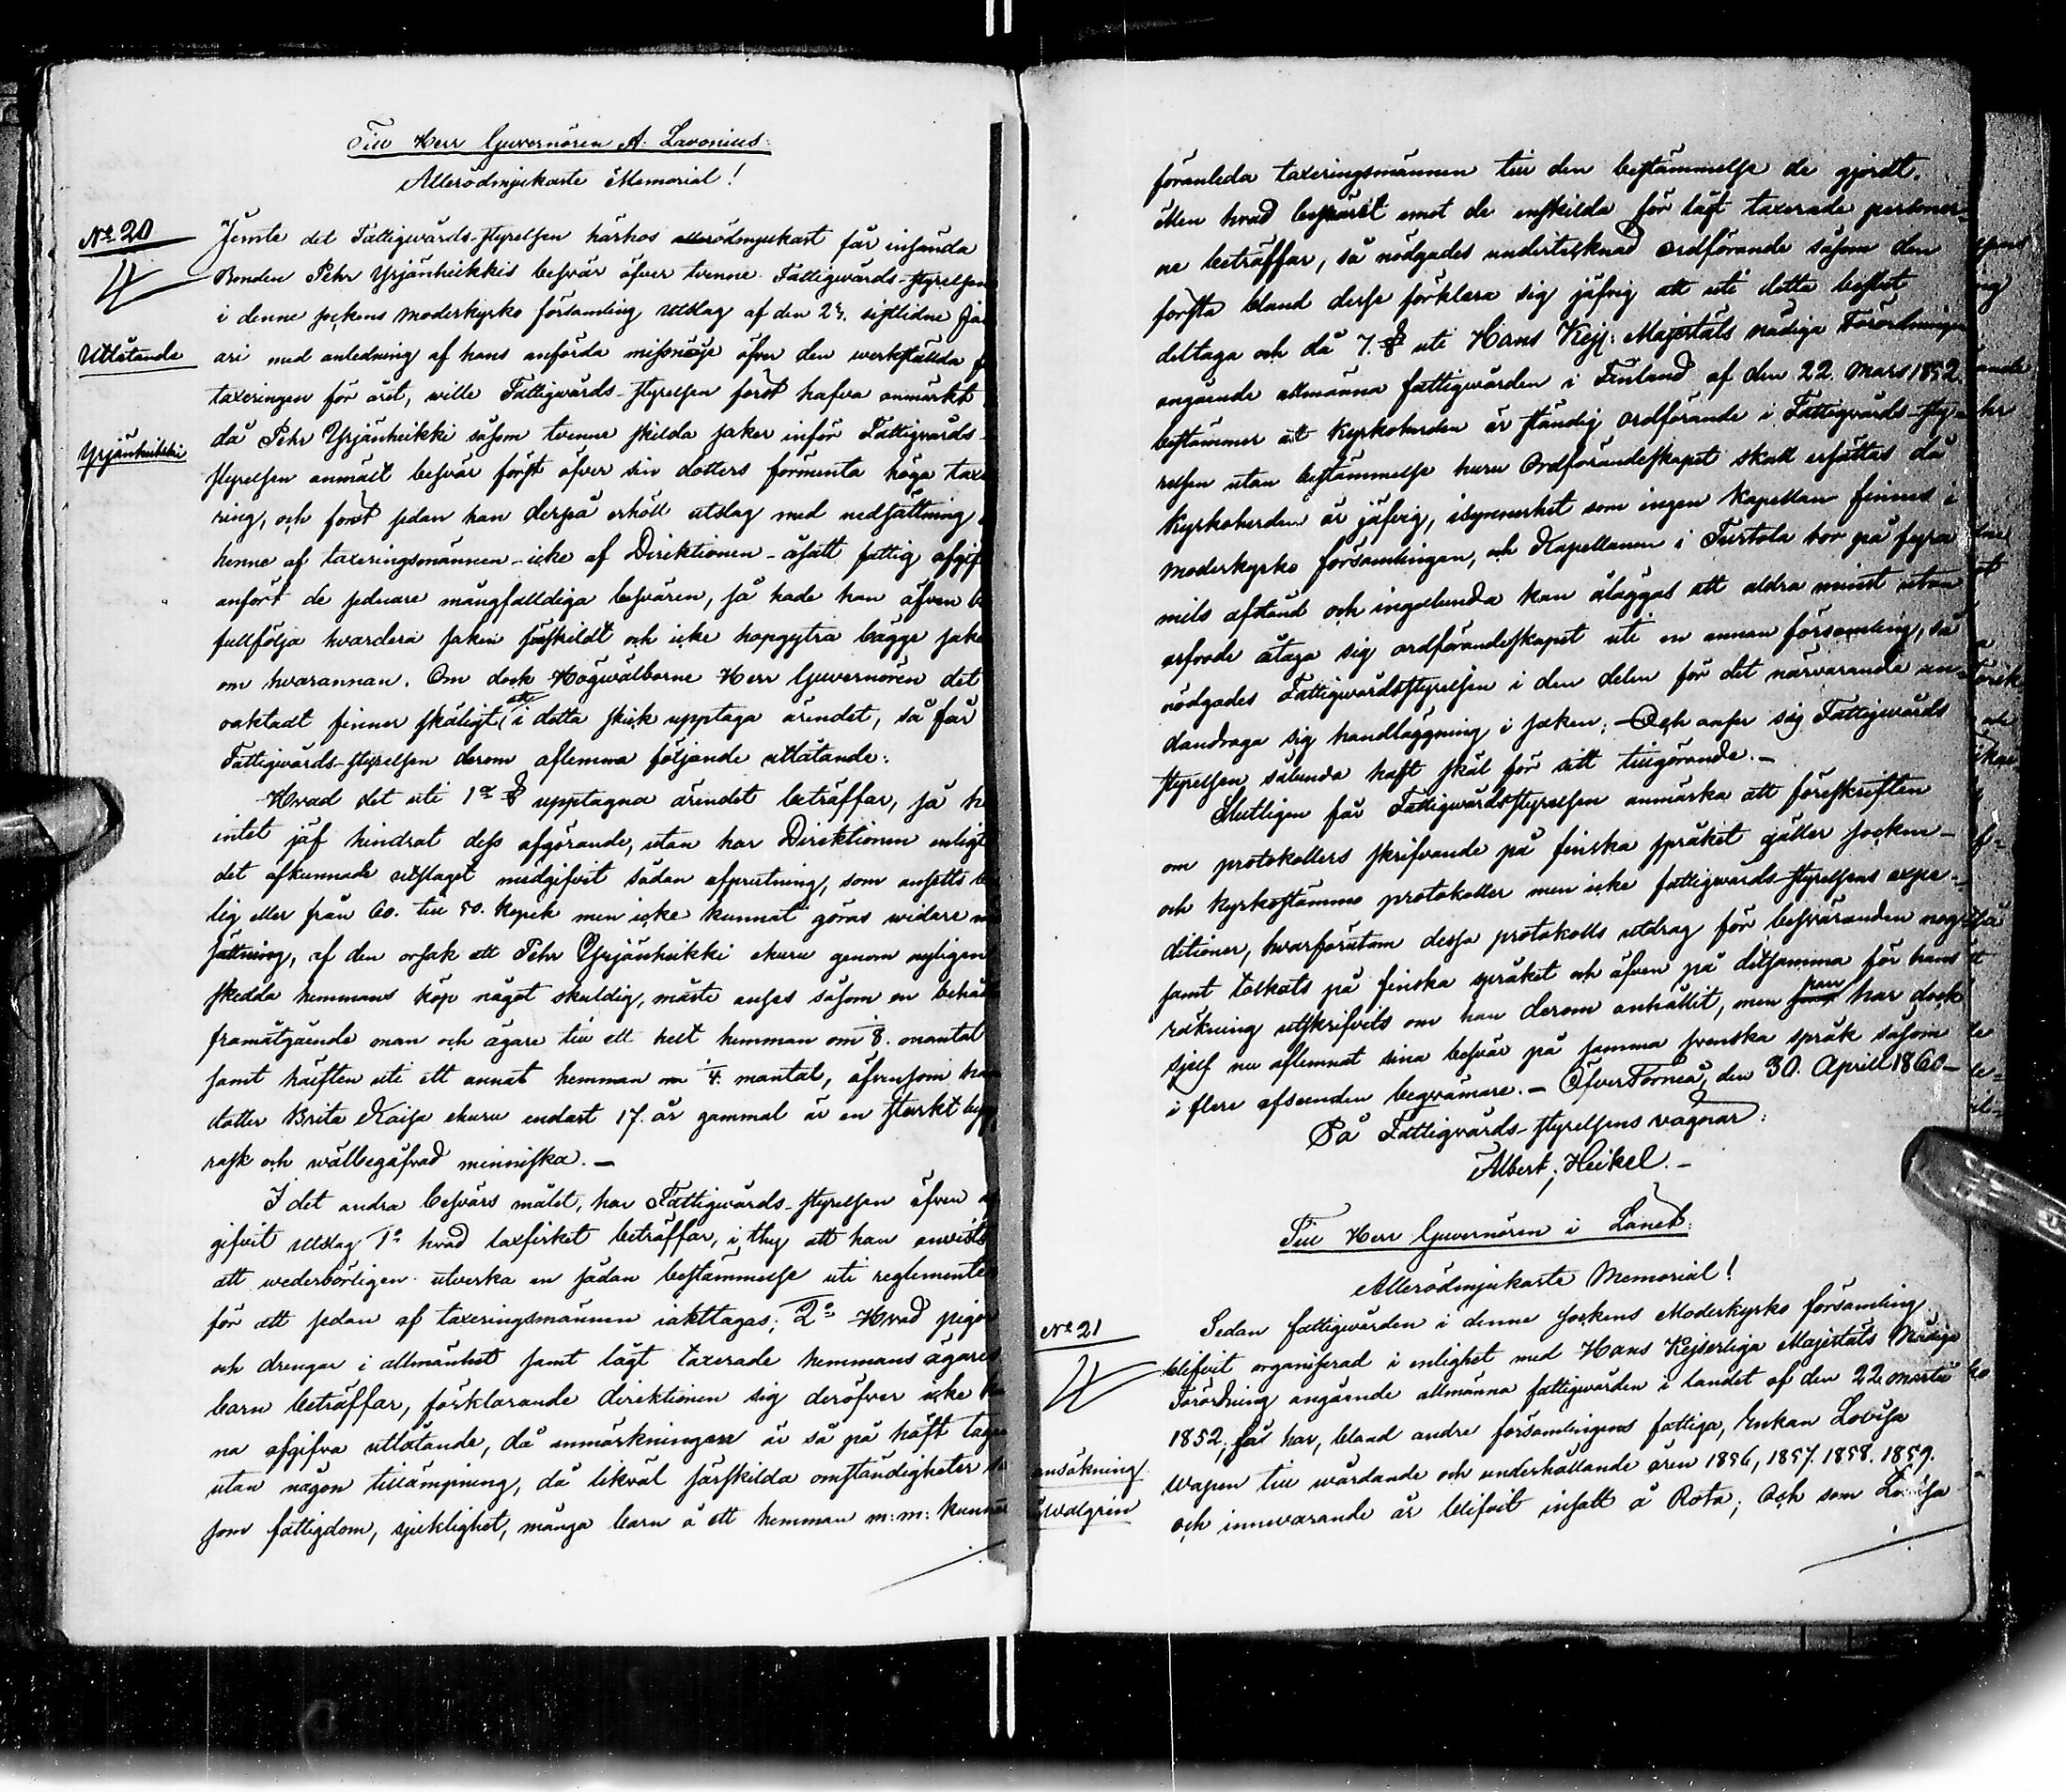 Till Herr Guvernören A. Lavonius.
Allerödmjukaste Memorial!
No 20
Utlåtande
Yrjänheikki
Jemte det Fattigwårds-styrelsen härhos allerödmjukast får insända
Bonden Pehr Yrjänheikkis besvär öfver tvenne Fattigwårds-styrelsen
i denne sockens moderkyrko församling utslag af den sistlidne
ari med anledning af hans anförda missnöje öfver den werkställda
taxeringen för året, wille Fattigwårds-styrelsen först hafva anmärkt
då Pehr Yrjänheikki såsom tvenne skilda saker inför Fattigvårds-
styrelsen anmält besvär först öfver sin dotters förmenta höga taxe
ring, och först sedan han derpå erhöll utslag med nedsättning
henne af taxeringsmännen - icke af Direktionen - åsatt fattig afgif
anfört de sednare mångfalldiga besvären, så hade han äfven
fullfölja hvardera saken särskildt och icke hopgytra bägge sake
om hvarannan. Om dock Högwälborne Herr Guvernören det
oaktadt finner skäligt, att i detta skick upptaga ärendet, så får
Fattigwårds-styrelsen derom aflemna följande utlåtande:
Hvad det uti 1o § upptagna ärendet beträffar, så h
intet jäf hindrat dess afgörande, utan har Direktionen enligt
det afkunnade utslaget medgifvit sådan afprutning, som ansetts
lig eller från 60. till 50. kopek men icke kunnat göras widare
sättning, af den orsak att Pehr Yrjänheikki ehuru genom nyligen
skedda hemmans köp något skuldig, måste anses såsom en behåll
framåtgående man och ägare till ett helt hemman om 1/8. mantal
samt hälften uti ett annat hemman om 1/4. mantal, äfvensom han
dotter Brita Kaisa ehuru endast 17. år gammal är en starkt bygg
rask och wälbegåfvad menniska. -
I det andra besvärs målet, har Fattigwårds-styrelsen äfven
gifvit utslag 1o hvad laxfisket beträffar, i thy att han anvists
att wederbörligen utverka en sådan bestämmelse uti reglemente
för att sedan af taxeringsmännen iakttagas; 2o Hvad pigor
och drengar i allmänhet samt lågt taxerade hemmans ägares
barn beträffar, förklarande direktionen sig deröfver icke
na afgifva utlåtande, då anmärkningarne är så på håft tagna
utan någon tillämpning, då likväl särskilda omständigheter
som fattigdom, sjuklighet, många barn å ett hemman m: m: kunna
föranleda taxeringsmännen till den bestämmelse de gjordt.
Men hvad besväret emot de enskilda för lågt taxerade personer-
na beträffar, så nödgades undertecknad ordförande såsom den
första bland desse förklara sig jäfvig att uti detta beslut
deltaga och då 7. § uti Hans Kejs: Majestäts nådiga Förordningen
angående allmänna fattigwården i Finland af den 22. Mars 1852.
bestämmer att kyrkoherden är ständig ordförande i Fattigvårds-sty-
relsen utan bestämmelse huru Ordförandeskapet skall ersättas då
Kyrkoherden är jäfvig, isynnerhet som ingen Kapellan finnes i
moderkyrko församlingen, och Kapellanen i Turtola bor på fyra
mils afstånd och ingalunda kan åläggas att aldra minst utan
arfvode åtaga sig ordförandeskapet uti en annan församling, så
nödgades Fattigwårdsstyrelsen i den delen för det närvarande un-
dandraga sig handläggning i saken; Och anser sig Fattigwårds
styrelsen sålunda haft skäl för sitt tillgörande. -
Slutligen får Fattigwårdsstyrelsen anmärka att föreskriften
om protokollers skrifvande på finska språket gäller socken-
och kyrkostämmo protokoller men icke fattigwårds-styrelsens expe-
ditioner, hvarförutom dessa protokolls utdrag för besväranden noga
samt tolkats på finska språket och äfven på ditsamma för hans
räkning utskrifvits om han derom anhållit, men han har dock
sjelf nu aflemnat sina besvär på samma svenska språk såsom
i flere afseenden beqvämare. - ÖfverTorneå, den 30. Aprill 1860 -
På Fattigvårds-styrelsens vägnar:
Albert, Heikel. -
Till Herr Guvernören i Länet.
Allerödmjukaste Memorial!
No 21
ansökning
Walgrén
Sedan fattigwården i denne sockens Moderkyrko församling
blifvit organiserad i enlighet med Hans Kejserliga Majestäts Nådiga
Förordning angående allmänna fattigwården i landet af den 22 martii
1852, så har, bland andre församlingens fattiga, Enkan Lovisa
till wårdande och underhållande åren 1856, 1857. 1858. 1859.
och innevarande år blifvit insatt å Rota; Och som Lovisa